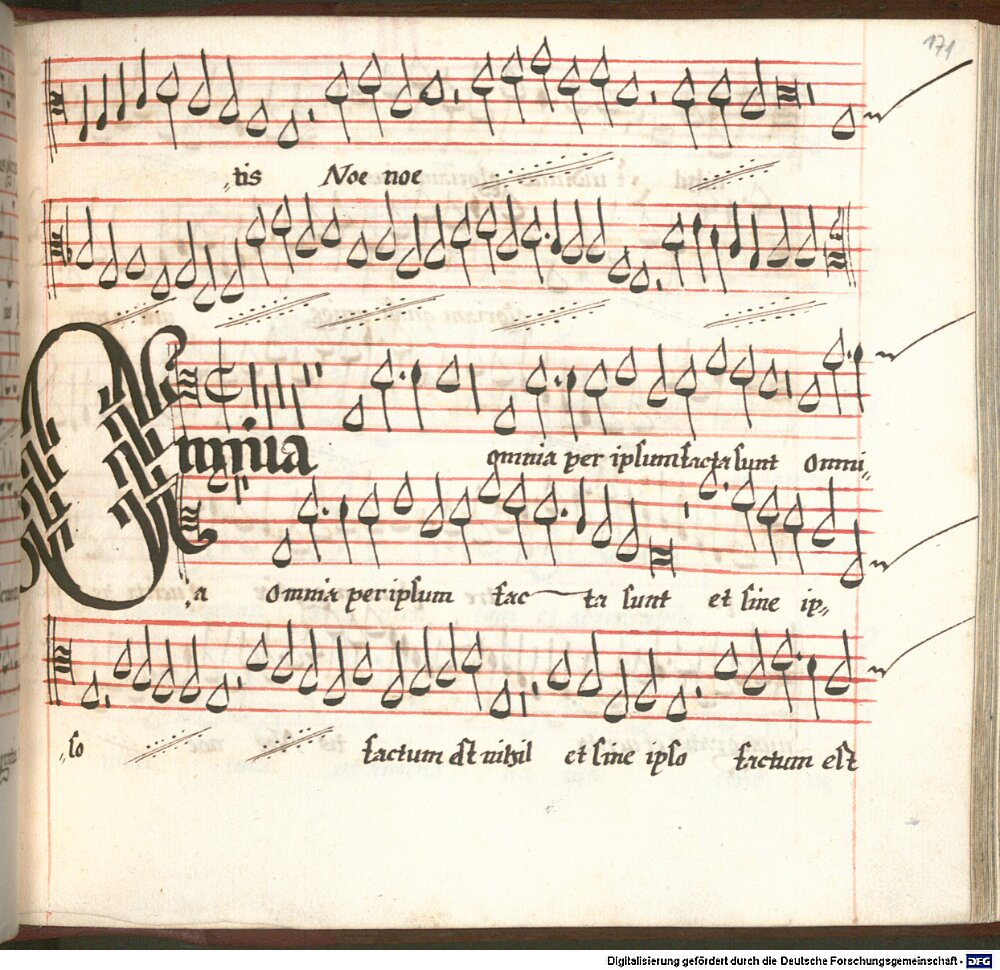 171
tis Noe noe
Omnia
omnia per ipsum facta sunt Omni
a Omnia per ipsum fac ta sunt et sine ip
so factum est nihil et sine ipso factum est
Digitalisierung gefördert durch die Deutsche Forschungsgemeinschaft - DFG